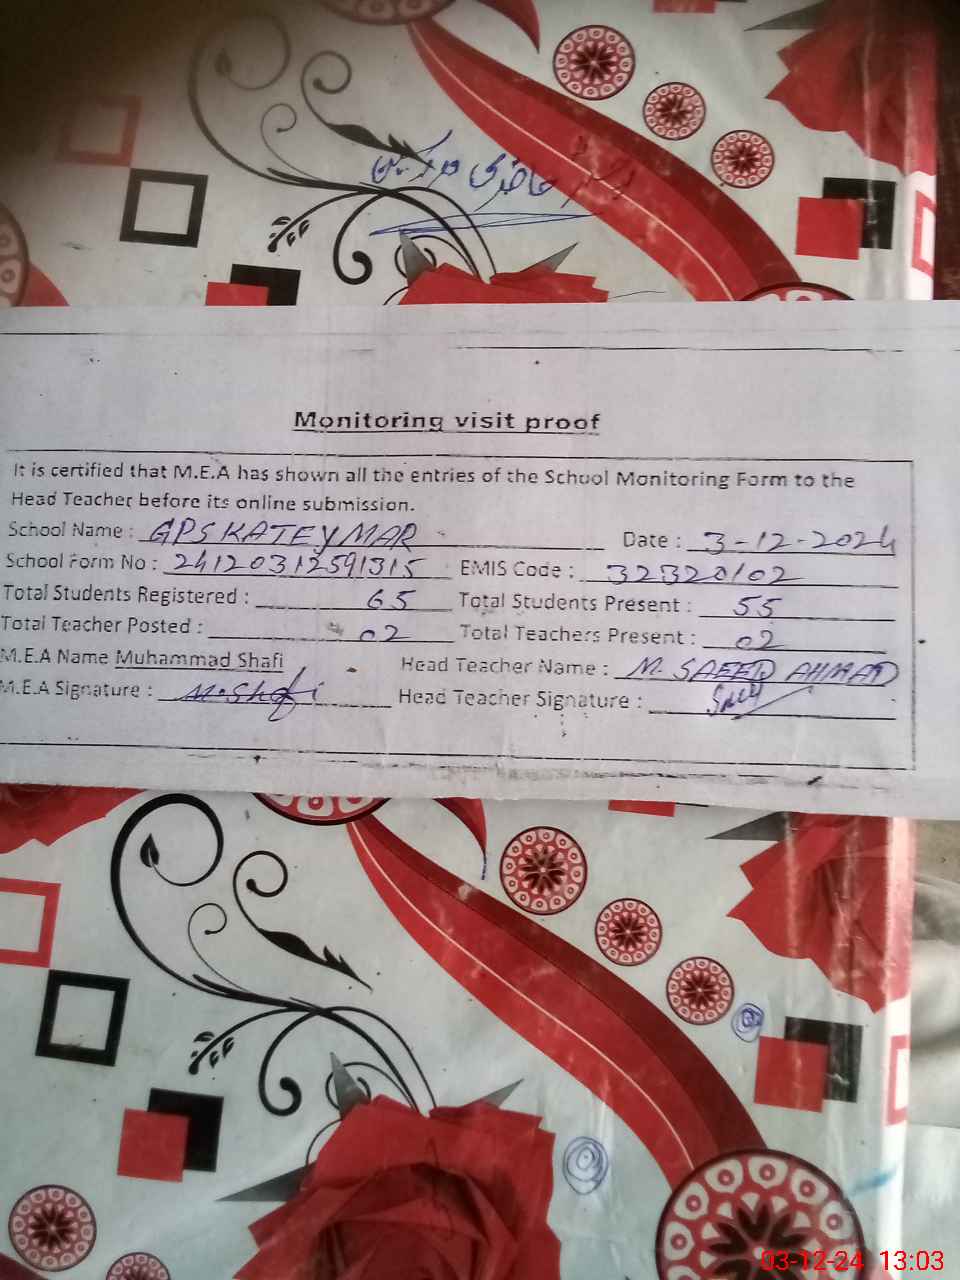 حاضری مدرسین
Monitoring visit proof
It is certified that M.E.A has shown all the entries of the School Monitoring Form to the
Head Teacher before its online submission.
School Name : GPS KATEY MAR Date : 3-12-2024
School Form No : 24120312591315 EMIS Code : 32320102
Total Students Registered : 65 Total Students Present : 55
Total Teacher Posted : 02 Total Teachers Present : 02
M.E.A Name Muhammad Shafi Head Teacher Name : M. SAEED AHMAD
M.E.A Signature : M.Shafi Head Teacher Signature :
03-12-24 13:03